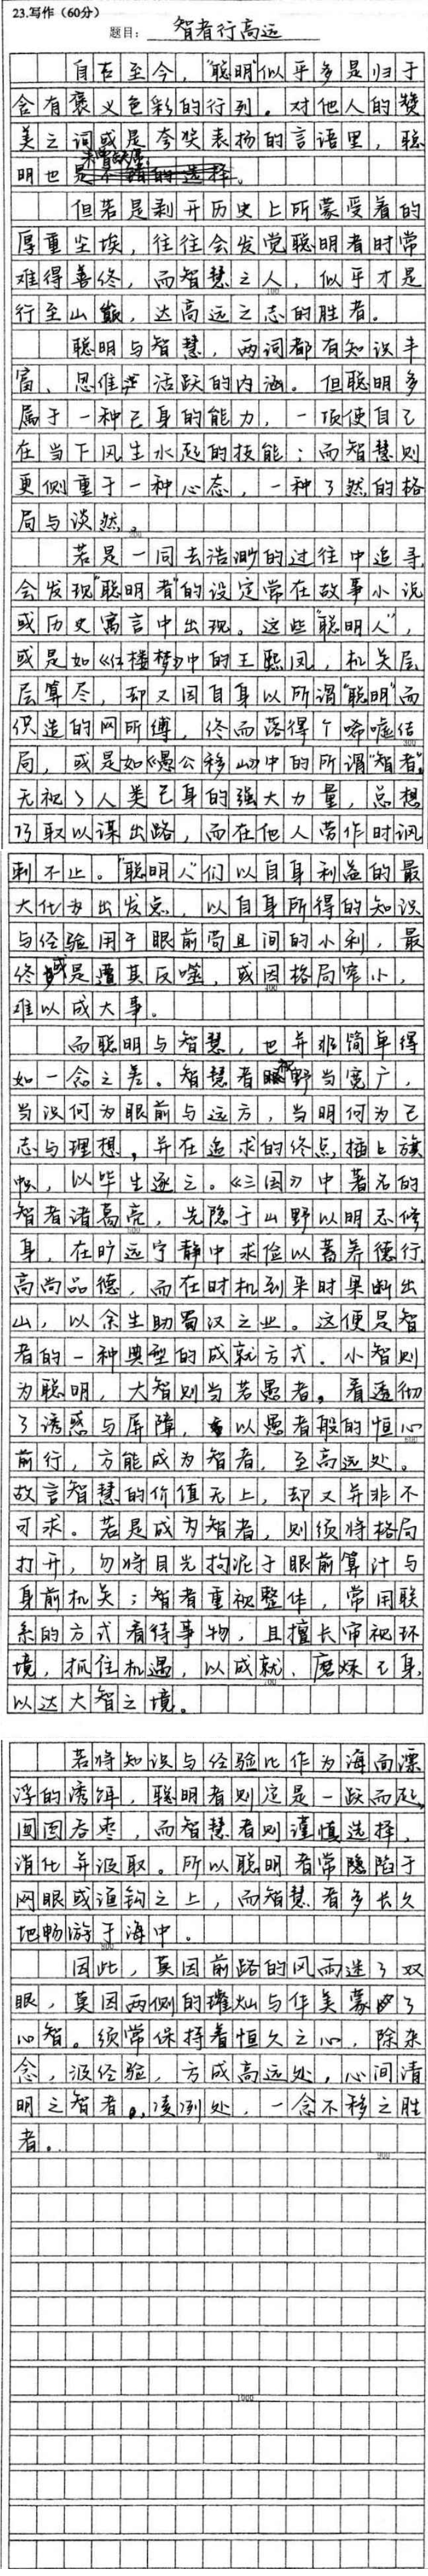 23.写作（60分）
题目：智者行高远
自古至今，“聪明”似乎多是归于
含有褒义色彩的行列。对他人的赞
美之词或是夸奖表扬的言语里，聪
明也未曾缺席。
但若是剥开历史上所蒙受着的
厚重尘埃，往往会发觉聪明者时常
难得善终，而智慧之人，似乎才是
行至山巅，达高远之志的胜者。
聪明与智慧，两词都有知识丰
富、思维活跃的内涵。但聪明多
属于一种己身的能力，一项使自己
在当下风生水起的技能；而智慧则
更侧重于一种心态，一种了然的格
局与淡然。
若是一同去浩渺的过往中追寻，
会发现“聪明者”的设定常在故事小说
或历史寓言中出现。这些“聪明人”，
或是如《红楼梦》中的王熙凤，机关层
层算尽，却又因自身以所谓“聪明”而
织造的网所缚，终而落得个唏嘘结
局，或是如《愚公移山》中的所谓“智者”，
无视了人类己身的强大力量，总想
巧取以谋出路，而在他人劳作时讽
刺不止。“聪明人”们以自身利益的最
大化为出发点，以自身所得的知识
与经验用于眼前苟且间的小利，最
终或是遭其反噬，或因格局窄小，
难以成大事。
而聪明与智慧，也并非简单得
如一念之差。智慧者视野当宽广，
当识何为眼前与远方，当明何为己
志与理想，并在追求的终点插上旗
帜，以毕生逐之。《三国》中著名的
智者诸葛亮，先隐于山野以明志修
身，在旷远宁静中求俭以蓄养德行，
高尚品德，而在时机到来时果断出
山，以余生助蜀汉之业。这便是智
者的一种典型的成就方式。小智则
为聪明，大智则当若愚者。看透彻
了诱惑与屏障，以愚者般的恒心
前行，方能成为智者，至高远处。
故言智慧的价值无上，却又并非不
可求。若是成为智者，则须将格局
打开，勿将目光拘泥于眼前算计与
身前机关；智者重视整体，常用联
系的方式看待事物，且擅长审视环
境，抓住机遇，以成就、磨炼己身，
以达大智之境。
若将知识与经验比作为海面漂
浮的诱饵，聪明者则定是一跃而起，
囫囵吞枣，而智慧者则谨慎选择，
消化并汲取。所以聪明者常隐陷于
网眼或渔钩之上，而智慧者多长久
地畅游于海中。
因此，莫因前路的风雨迷了双
眼，莫因两侧的璀灿与华美蒙了
心智。须常保持着恒久之心，除杂
念，汲经验，方成高远处，心间清
明之智者，凄冽处，一念不移之胜
者。